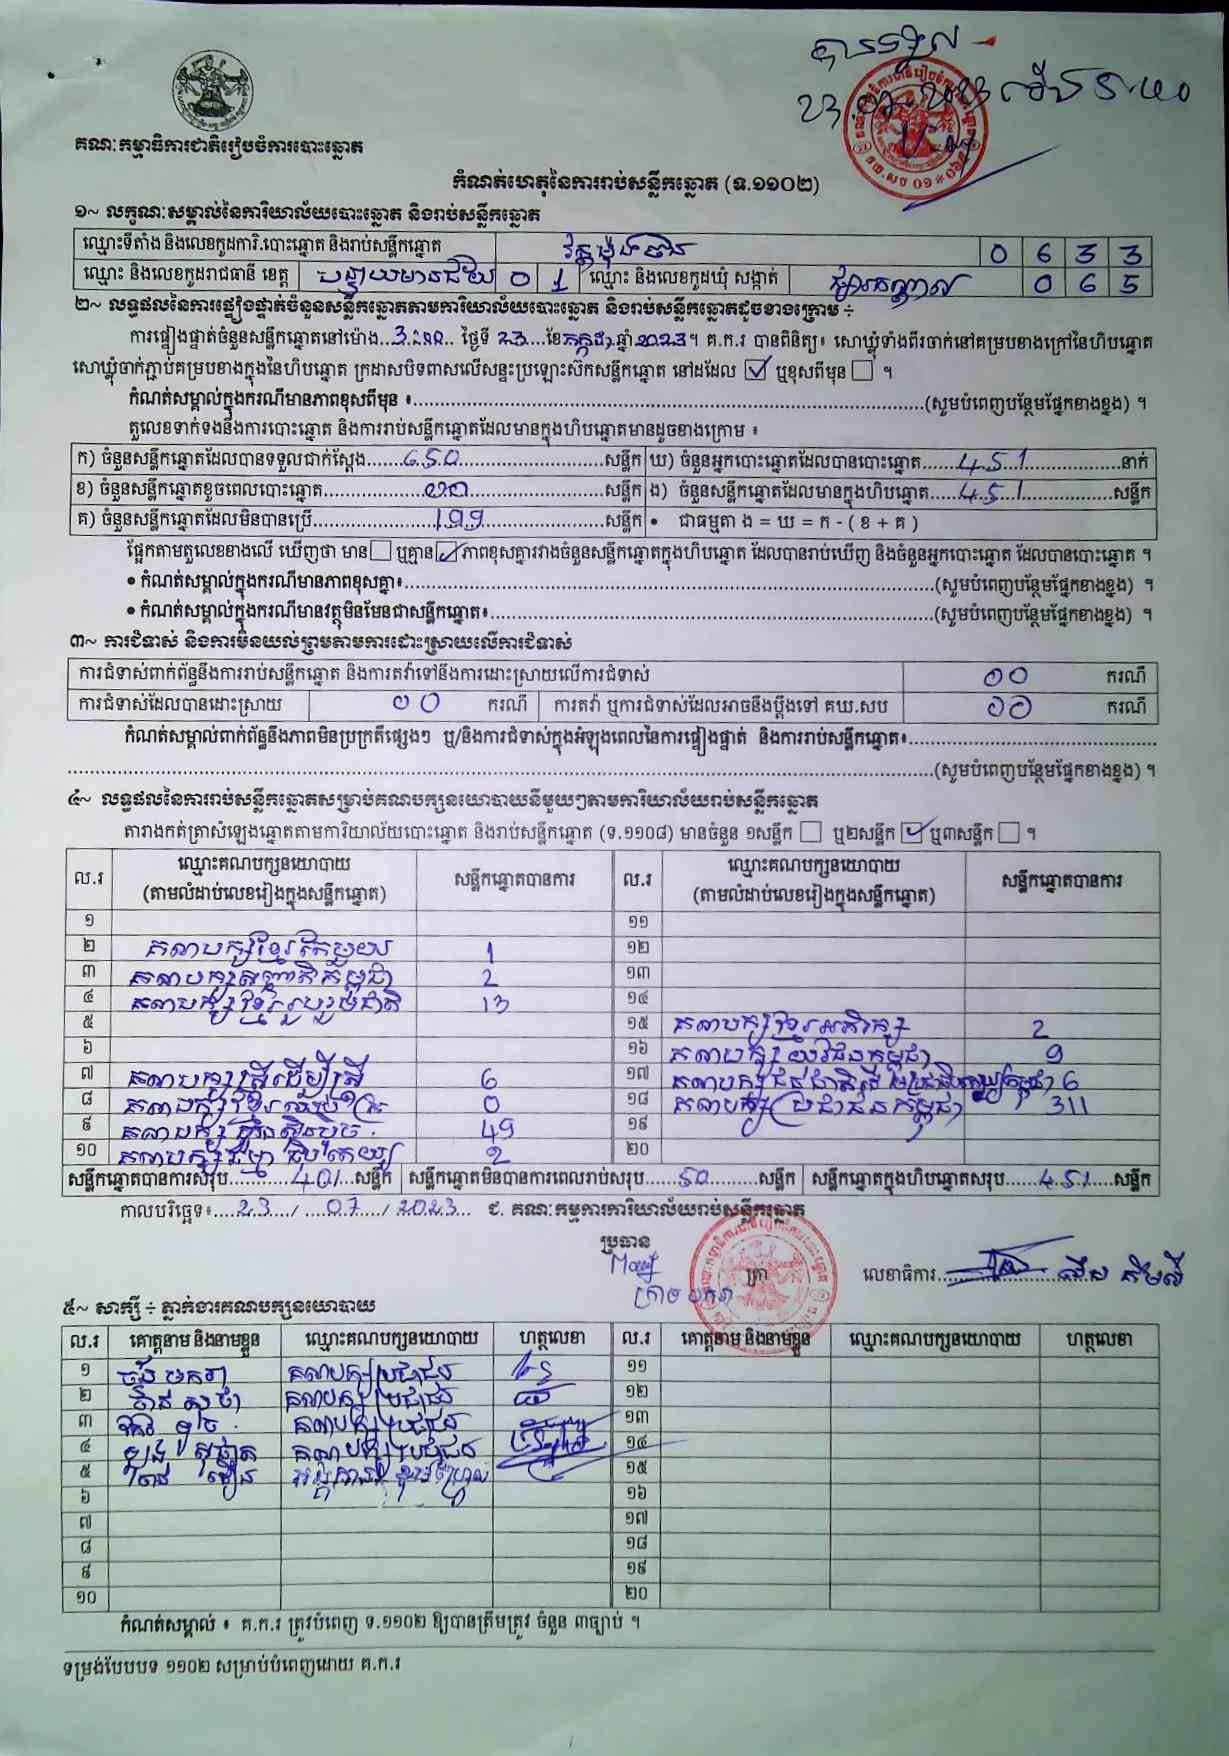 បានទទួល
23.07.2023 ម៉ោង ៥:៤០
គណៈកម្មាធិការជាតិរៀបចំការបោះឆ្នោត
កំណត់ហេតុនៃការរាប់សន្លឹកឆ្នោត (ទ.១១០២)
១~ លក្ខណៈសម្គាល់នៃការិយាល័យបោះឆ្នោត និងរាប់សន្លឹកឆ្នោត
ឈ្មោះទីតាំង និងលេខកូដការិ.បោះឆ្នោត និងរាប់សន្លឹកឆ្នោត 0 6 3 3
ឈ្មោះ និងលេខកូដរាជធានី ខេត្ត បន្ទាយមានជ័យ 0 1 ឈ្មោះ និងលេខកូដឃុំ សង្កាត់ ផ្សារកណ្តាល 0 6 5
២~ លទ្ធផលនៃការផ្ទៀងផ្ទាត់ចំនួនសន្លឹកឆ្នោតតាមការិយាល័យបោះឆ្នោត និងរាប់សន្លឹកឆ្នោតដូចខាងក្រោម ÷
ការផ្ទៀងផ្ទាត់ចំនួនសន្លឹកឆ្នោតនៅម៉ោង ថ្ងៃទី 23 ខែកក្កដា ឆ្នាំ 2023។ គ.ក.រ បានពិនិត្យ៖ សោឃ្លុំទាំងពីរចាក់នៅគម្របខាងក្រៅនៃហិបឆ្នោត
សោឃ្លុំចាក់ភ្ជាប់គម្របខាងក្នុងនៃហិបឆ្នោត ក្រដាសបិទពាសលើសន្ទះប្រឡោះស៊កសន្លឹកឆ្នោត នៅដដែល ☑ ឬខុសពីមុន ☐ ។
កំណត់សម្គាល់ក្នុងករណីមានភាពខុសពីមុន ៖..........(សូមបំពេញបន្ថែមផ្នែកខាងខ្នង) ។
តួលេខទាក់ទងនឹងការបោះឆ្នោត និងការរាប់សន្លឹកឆ្នោតដែលមានក្នុងហិបឆ្នោតមានដូចខាងក្រោម ៖
ក) ចំនួនសន្លឹកឆ្នោតដែលបានទទួលជាក់ស្តែង 650 សន្លឹក ឃ) ចំនួនអ្នកបោះឆ្នោតដែលបានបោះឆ្នោត 451 នាក់
ខ) ចំនួនសន្លឹកឆ្នោតខូចពេលបោះឆ្នោត 00 សន្លឹក ង) ចំនួនសន្លឹកឆ្នោតដែលមានក្នុងហិបឆ្នោត 451 សន្លឹក
គ) ចំនួនសន្លឹកឆ្នោតដែលមិនបានប្រើ 199 សន្លឹក • ជាធម្មតា ង = ឃ = ក - ( ខ + គ )
ផ្អែកតាមតួលេខខាងលើ ឃើញថា មាន ☐ ឬគ្មាន ☑ ភាពខុសគ្នារវាងចំនួនសន្លឹកឆ្នោតក្នុងហិបឆ្នោត ដែលបានរាប់ឃើញ និងចំនួនអ្នកបោះឆ្នោត ដែលបានបោះឆ្នោត ។
• កំណត់សម្គាល់ក្នុងករណីមានភាពខុសគ្នា៖..........(សូមបំពេញបន្ថែមផ្នែកខាងខ្នង) ។
• កំណត់សម្គាល់ក្នុងករណីមានវត្ថុមិនមែនជាសន្លឹកឆ្នោត៖..........(សូមបំពេញបន្ថែមផ្នែកខាងខ្នង) ។
៣~ ការជំទាស់ និងការមិនយល់ព្រមតាមការដោះស្រាយលើការជំទាស់
ការជំទាស់ពាក់ព័ន្ធនឹងការរាប់សន្លឹកឆ្នោត និងការតវ៉ាទៅនឹងការដោះស្រាយលើការជំទាស់ 00 ករណី
ការជំទាស់ដែលបានដោះស្រាយ 00 ករណី ការតវ៉ា ឬការជំទាស់ដែលអាចនឹងប្តឹងទៅ គឃ.សប 00 ករណី
កំណត់សម្គាល់ពាក់ព័ន្ធនឹងភាពមិនប្រក្រតីផ្សេងៗ ឬ/និងការជំទាស់ក្នុងអំឡុងពេលនៃការផ្ទៀងផ្ទាត់ និងការរាប់សន្លឹកឆ្នោត៖..........
..........(សូមបំពេញបន្ថែមផ្នែកខាងខ្នង) ។
៤~ លទ្ធផលនៃការរាប់សន្លឹកឆ្នោតសម្រាប់គណបក្សនយោបាយនីមួយៗតាមការិយាល័យរាប់សន្លឹកឆ្នោត
តារាងកត់ត្រាសំឡេងឆ្នោតតាមការិយាល័យបោះឆ្នោត និងរាប់សន្លឹកឆ្នោត (ទ.១១០៨) មានចំនួន ១សន្លឹក ☐ ឬ២សន្លឹក ☑ ឬ៣សន្លឹក ☐ ។
ល.រ ឈ្មោះគណបក្សនយោបាយ (តាមលំដាប់លេខរៀងក្នុងសន្លឹកឆ្នោត) សន្លឹកឆ្នោតបានការ ល.រ ឈ្មោះគណបក្សនយោបាយ (តាមលំដាប់លេខរៀងក្នុងសន្លឹកឆ្នោត) សន្លឹកឆ្នោតបានការ
១ ១១
២ គណបក្សខ្មែរតែមួយ 1 ១២
៣ គណបក្សសញ្ជាតិកម្ពុជា 2 ១៣
៤ គណបក្សខ្មែររួបរួមជាតិ 13 ១៤
៥ ១៥ គណបក្សខ្មែរអភិរក្ស 2
៦ ១៦ គណបក្សយុវជនកម្ពុជា 9
៧ គណបក្សស្ត្រីដើម្បីស្ត្រី 6 ១៧ 6
៨ គណបក្សខ្មែរឈប់ក្រ 0 ១៨ គណបក្សប្រជាជនកម្ពុជា 311
៩ គណបក្សហ្វ៊ុនស៊ិនប៉ិច 49 ១៩
១០ គណបក្សធម្មាធិបតេយ្យ 2 ២០
សន្លឹកឆ្នោតបានការសរុប 401 សន្លឹក សន្លឹកឆ្នោតមិនបានការពេលរាប់សរុប 50 សន្លឹក សន្លឹកឆ្នោតក្នុងហិបឆ្នោតសរុប 451 សន្លឹក
កាលបរិច្ឆេទ៖ 23 / 07 / 2023 ជ. គណៈកម្មការការិយាល័យរាប់សន្លឹកឆ្នោត
ប្រធាន
ត្រា លេខាធិការ
៥~ សាក្សី ÷ ភ្នាក់ងារគណបក្សនយោបាយ
ល.រ គោត្តនាម និងនាមខ្លួន ឈ្មោះគណបក្សនយោបាយ ហត្ថលេខា ល.រ គោត្តនាម និងនាមខ្លួន ឈ្មោះគណបក្សនយោបាយ ហត្ថលេខា
១ គណបក្សប្រជាជន ១១
២ គណបក្សប្រជាជន ១២
៣ គណបក្សប្រជាជន ១៣
៤ គណបក្សប្រជាជន ១៤
៥ ១៥
៦ ១៦
៧ ១៧
៨ ១៨
៩ ១៩
១០ ២០
កំណត់សម្គាល់ ៖ គ.ក.រ ត្រូវបំពេញ ទ.១១០២ ឱ្យបានត្រឹមត្រូវ ចំនួន ៣ច្បាប់ ។
ទម្រង់បែបបទ ១១០២ សម្រាប់បំពេញដោយ គ.ក.រ